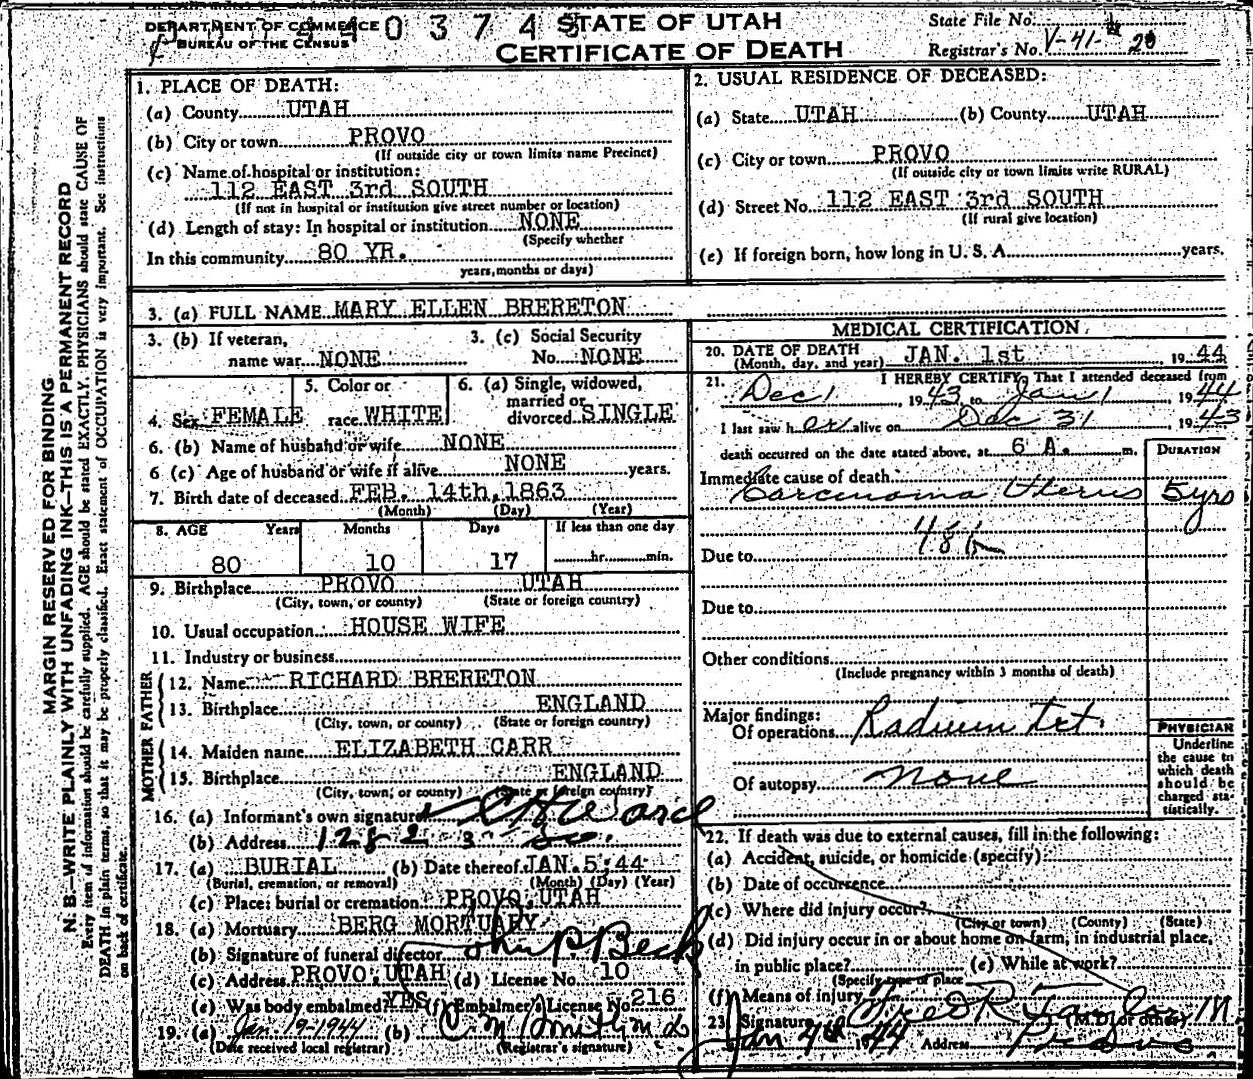 DEPARTMENT OF COMMERCE
BUREAU OF THE CENSUS
4 0 3 7 4
STATE OF UTAH
CERTIFICATE OF DEATH
State File No.
Registrar's No. V-41- 20
MARGIN RESERVED FOR BINDING
N. B.—WRITE PLAINLY WITH UNFADING INK—THIS IS A PERMANENT RECORD
Every item of information should be carefully supplied. AGE should be stated EXACTLY. PHYSICIANS should state CAUSE OF
DEATH in plain terms, so that it may be properly classified. Exact statement of OCCUPATION is very important. See instructions
on back of certificate.
1. PLACE OF DEATH:
(a) County UTAH
(b) City or town PROVO
(If outside city or town limits name Precinct)
(c) Name of hospital or institution:
112 EAST 3rd SOUTH
(If not in hospital or institution give street number or location)
(d) Length of stay: In hospital or institution NONE
(Specify whether
In this community 80 YR.
years, months or days)
2. USUAL RESIDENCE OF DECEASED:
(a) State UTAH (b) County UTAH
(c) City or town PROVO
(If outside city or town limits write RURAL)
(d) Street No. 112 EAST 3rd SOUTH
(If rural give location)
(e) If foreign born, how long in U. S. A. years.
3. (a) FULL NAME MARY ELLEN BRERETON
3. (b) If veteran,
name war NONE
3. (c) Social Security
No. NONE
4. Sex FEMALE
5. Color or
race WHITE
6. (a) Single, widowed,
married or
divorced SINGLE
6. (b) Name of husband or wife NONE
6 (c) Age of husband or wife if alive NONE years.
7. Birth date of deceased FEB. 14th, 1863
(Month) (Day) (Year)
8. AGE Years Months Days If less than one day
80 10 17 hr. min.
9. Birthplace PROVO UTAH
(City, town, or county) (State or foreign country)
10. Usual occupation HOUSE WIFE
11. Industry or business
FATHER
12. Name RICHARD BRERETON
13. Birthplace ENGLAND
(City, town, or county) (State or foreign country)
MOTHER
14. Maiden name ELIZABETH CARR
15. Birthplace ENGLAND
(City, town, or county) (State or foreign country)
16. (a) Informant's own signature
(b) Address 128 2 3 So.
17. (a) BURIAL (b) Date thereof JAN. 5, 44
(Burial, cremation, or removal) (Month) (Day) (Year)
(c) Place: burial or cremation PROVO, UTAH
18. (a) Mortuary BERG MORTUARY
(b) Signature of funeral director John P. Beck
(c) Address PROVO, UTAH (d) License No. 10
(e) Was body embalmed? YES (f) Embalmer's License No. 216
19. (a) Jan 19-1944 (b)
(Date received local registrar) (Registrar's signature)
MEDICAL CERTIFICATION
20. DATE OF DEATH
(Month, day, and year) JAN. 1st 1944
21. I HEREBY CERTIFY, That I attended deceased from
Dec 1, 1943 to Jan 1, 1944
I last saw her alive on Dec 31, 1943
death occurred on the date stated above, at 6 A. m.
DURATION
Immediate cause of death
Carcinoma Uterus 5 yrs
48b
Due to
Due to
Other conditions
(Include pregnancy within 3 months of death)
Major findings:
Of operations Radium trt.
Of autopsy none
PHYSICIAN
Underline
the cause to
which death
should be
charged sta-
tistically.
22. If death was due to external causes, fill in the following:
(a) Accident, suicide, or homicide (specify)
(b) Date of occurrence
(c) Where did injury occur?
(City or town) (County) (State)
(d) Did injury occur in or about home on farm, in industrial place,
in public place? (e) While at work?
(Specify type of place
(f) Means of injury
23. Signature Fred R Taylor M
(M.D. or other)
Jan 4th 1944 Address Provo